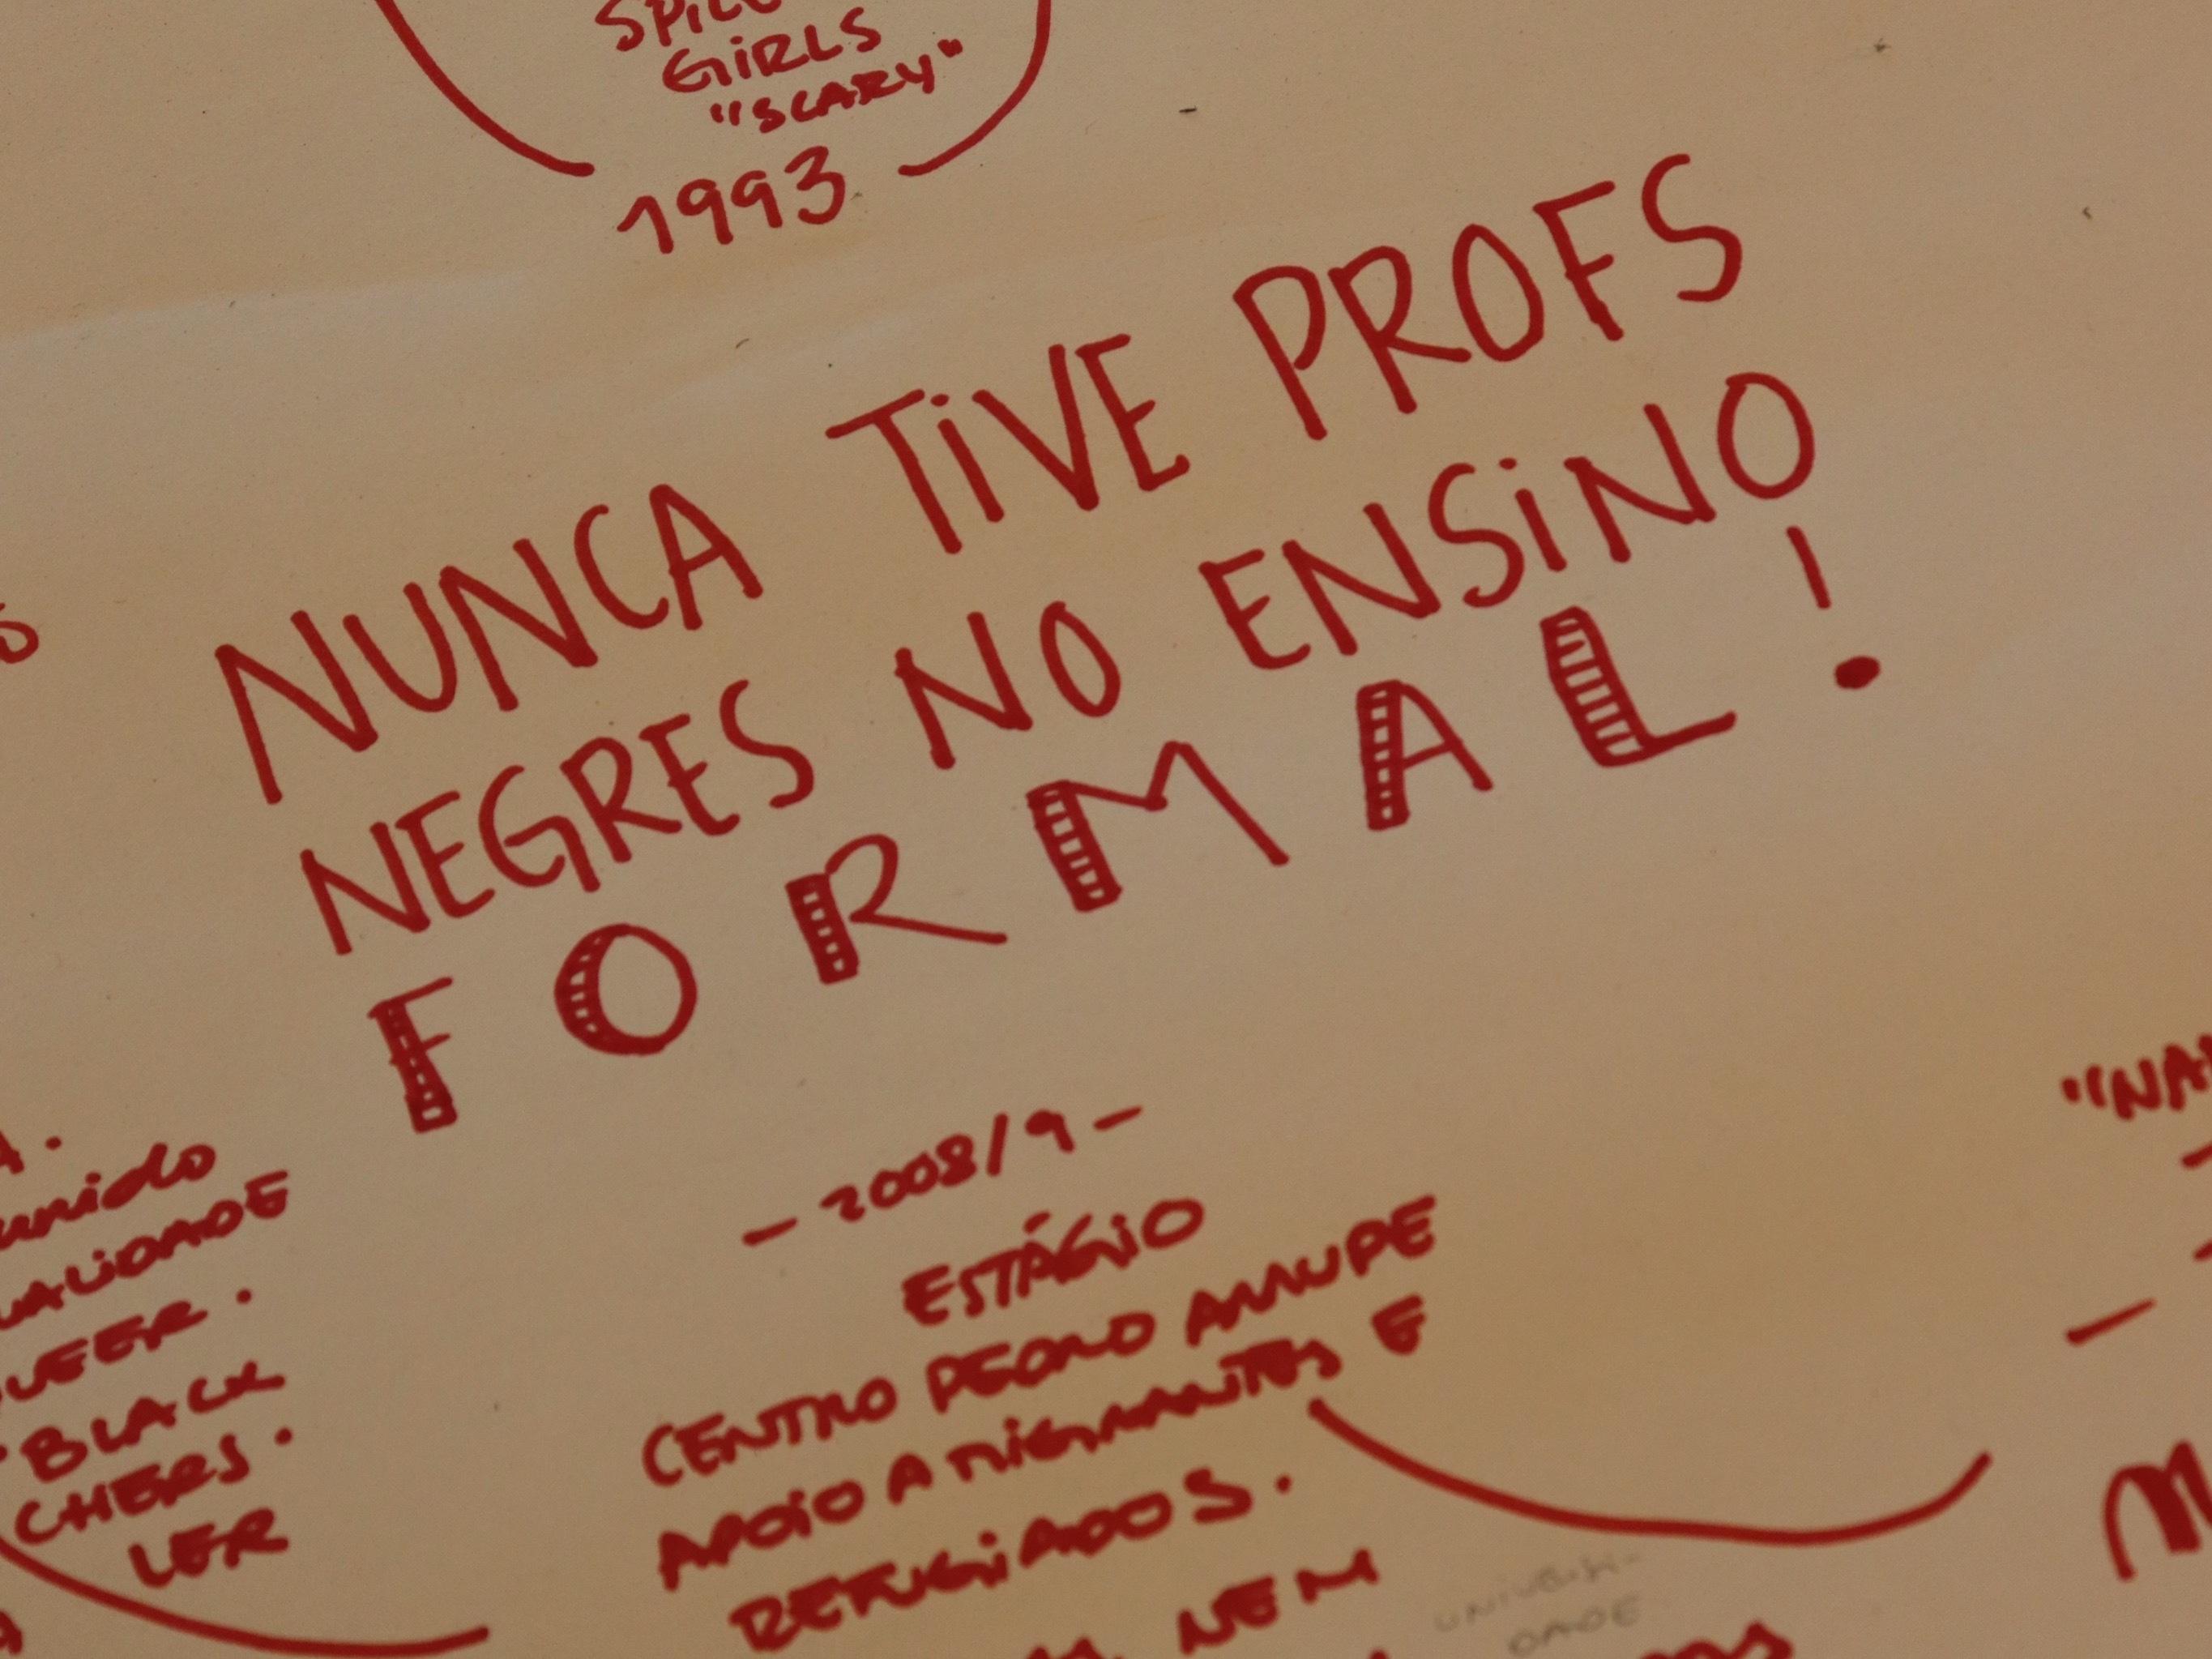 GiRLS
"SCARY"
1993
NUNCA TiVE PROFS
NEGRES NO ENSiNO
FORMAL!
- 2008/9 -
ESTÁGiO
CENTRO PEDRO ARRUPE
APOiO A MiGRANTES E
REFUGiADOS.
NEM
UNiVERSi-
DADE
"NA
BLACK
LER